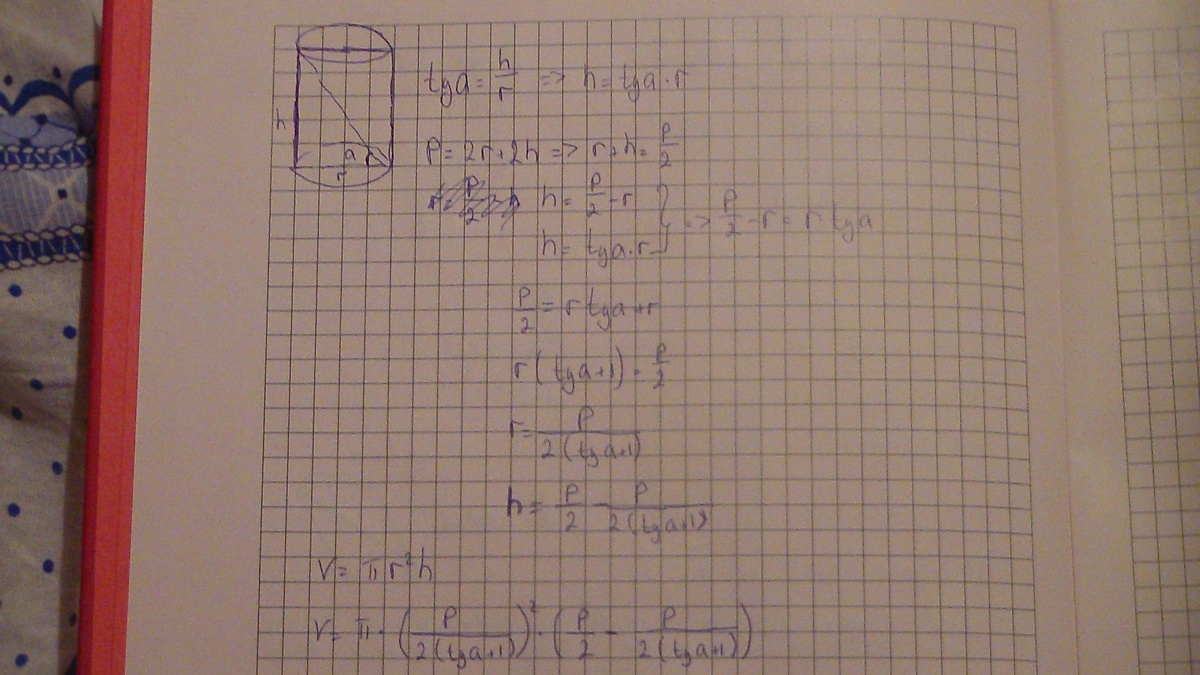 h
a
r
tga = h/r => h = tga · r
P = 2r + 2h => r + h = P/2
h = P/2 - r
h = tga · r } => P/2 - r = r tga
P/2 = r tga + r
r(tga+1) = P/2
r = P/(2(tga+1))
h = P/2 - P/(2(tga+1))
V = πr²h
V = π · (P/(2(tga+1)))² · (P/2 - P/(2(tga+1)))